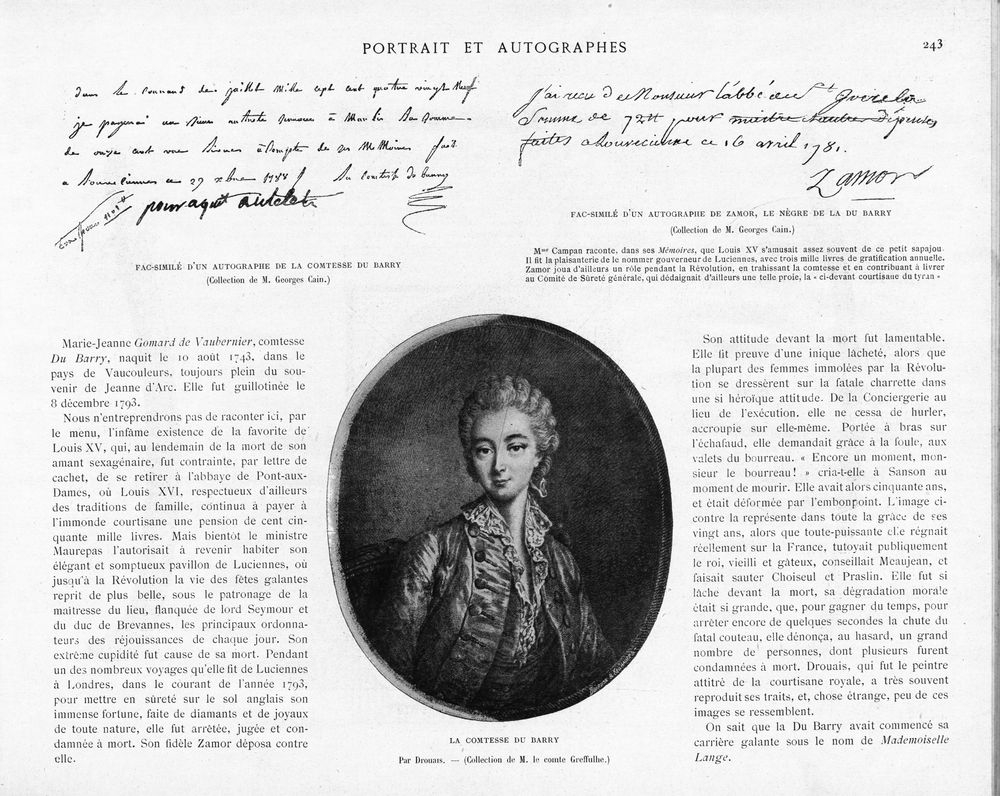 PORTRAIT ET AUTOGRAPHES
243
dans le courant de juillet mille sept cent quatre vingt neuf
je payerai
de onze cent
a 1788 la comtesse du barry
pour aquit
J'ai recu de Monsieur l'abbé de St
Somme de 72 pour dépenses
faites a Louvecienne ce 16 avril 1781.
Zamor
FAC-SIMILÉ D'UN AUTOGRAPHE DE LA COMTESSE DU BARRY
(Collection de M. Georges Cain.)
FAC-SIMILÉ D'UN AUTOGRAPHE DE ZAMOR, LE NÈGRE DE LA DU BARRY
(Collection de M. Georges Cain.)
Mme Campan raconte, dans ses Mémoires, que Louis XV s'amusait assez souvent de ce petit sapajou.
Il fit la plaisanterie de le nommer gouverneur de Luciennes, avec trois mille livres de gratification annuelle.
Zamor joua d'ailleurs un rôle pendant la Révolution, en trahissant la comtesse et en contribuant à livrer
au Comité de Sûreté générale, qui dédaignait d'ailleurs une telle proie, la « ci-devant courtisane du tyran »
Marie-Jeanne Gomard de Vaubernier, comtesse
Du Barry, naquit le 10 août 1743, dans le
pays de Vaucouleurs, toujours plein du sou-
venir de Jeanne d'Arc. Elle fut guillotinée le
8 décembre 1793.
Nous n'entreprendrons pas de raconter ici, par
le menu, l'infâme existence de la favorite de
Louis XV, qui, au lendemain de la mort de son
amant sexagénaire, fut contrainte, par lettre de
cachet, de se retirer à l'abbaye de Pont-aux-
Dames, où Louis XVI, respectueux d'ailleurs
des traditions de famille, continua à payer à
l'immonde courtisane une pension de cent cin-
quante mille livres. Mais bientôt le ministre
Maurepas l'autorisait à revenir habiter son
élégant et somptueux pavillon de Luciennes, où
jusqu'à la Révolution la vie des fêtes galantes
reprit de plus belle, sous le patronage de la
maîtresse du lieu, flanquée de lord Seymour et
du duc de Brevannes, les principaux ordonna-
teurs des réjouissances de chaque jour. Son
extrême cupidité fut cause de sa mort. Pendant
un des nombreux voyages qu'elle fit de Luciennes
à Londres, dans le courant de l'année 1793,
pour mettre en sûreté sur le sol anglais son
immense fortune, faite de diamants et de joyaux
de toute nature, elle fut arrêtée, jugée et con-
damnée à mort. Son fidèle Zamor déposa contre
elle.
LA COMTESSE DU BARRY
Par Drouais. — (Collection de M. le comte Greffulhe.)
Son attitude devant la mort fut lamentable.
Elle fit preuve d'une inique lâcheté, alors que
la plupart des femmes immolées par la Révolu-
tion se dressèrent sur la fatale charrette dans
une si héroïque attitude. De la Conciergerie au
lieu de l'exécution, elle ne cessa de hurler,
accroupie sur elle-même. Portée à bras sur
l'échafaud, elle demandait grâce à la foule, aux
valets du bourreau. « Encore un moment, mon-
sieur le bourreau! » cria-t-elle à Sanson au
moment de mourir. Elle avait alors cinquante ans,
et était déformée par l'embonpoint. L'image ci-
contre la représente dans toute la grâce de ses
vingt ans, alors que toute-puissante elle régnait
réellement sur la France, tutoyait publiquement
le roi, vieilli et gâteux, conseillait Meaujean, et
faisait sauter Choiseul et Praslin. Elle fut si
lâche devant la mort, sa dégradation morale
était si grande, que, pour gagner du temps, pour
arrêter encore de quelques secondes la chute du
fatal couteau, elle dénonça, au hasard, un grand
nombre de personnes, dont plusieurs furent
condamnées à mort. Drouais, qui fut le peintre
attitré de la courtisane royale, a très souvent
reproduit ses traits, et, chose étrange, peu de ces
images se ressemblent.
On sait que la Du Barry avait commencé sa
carrière galante sous le nom de Mademoiselle
Lange.